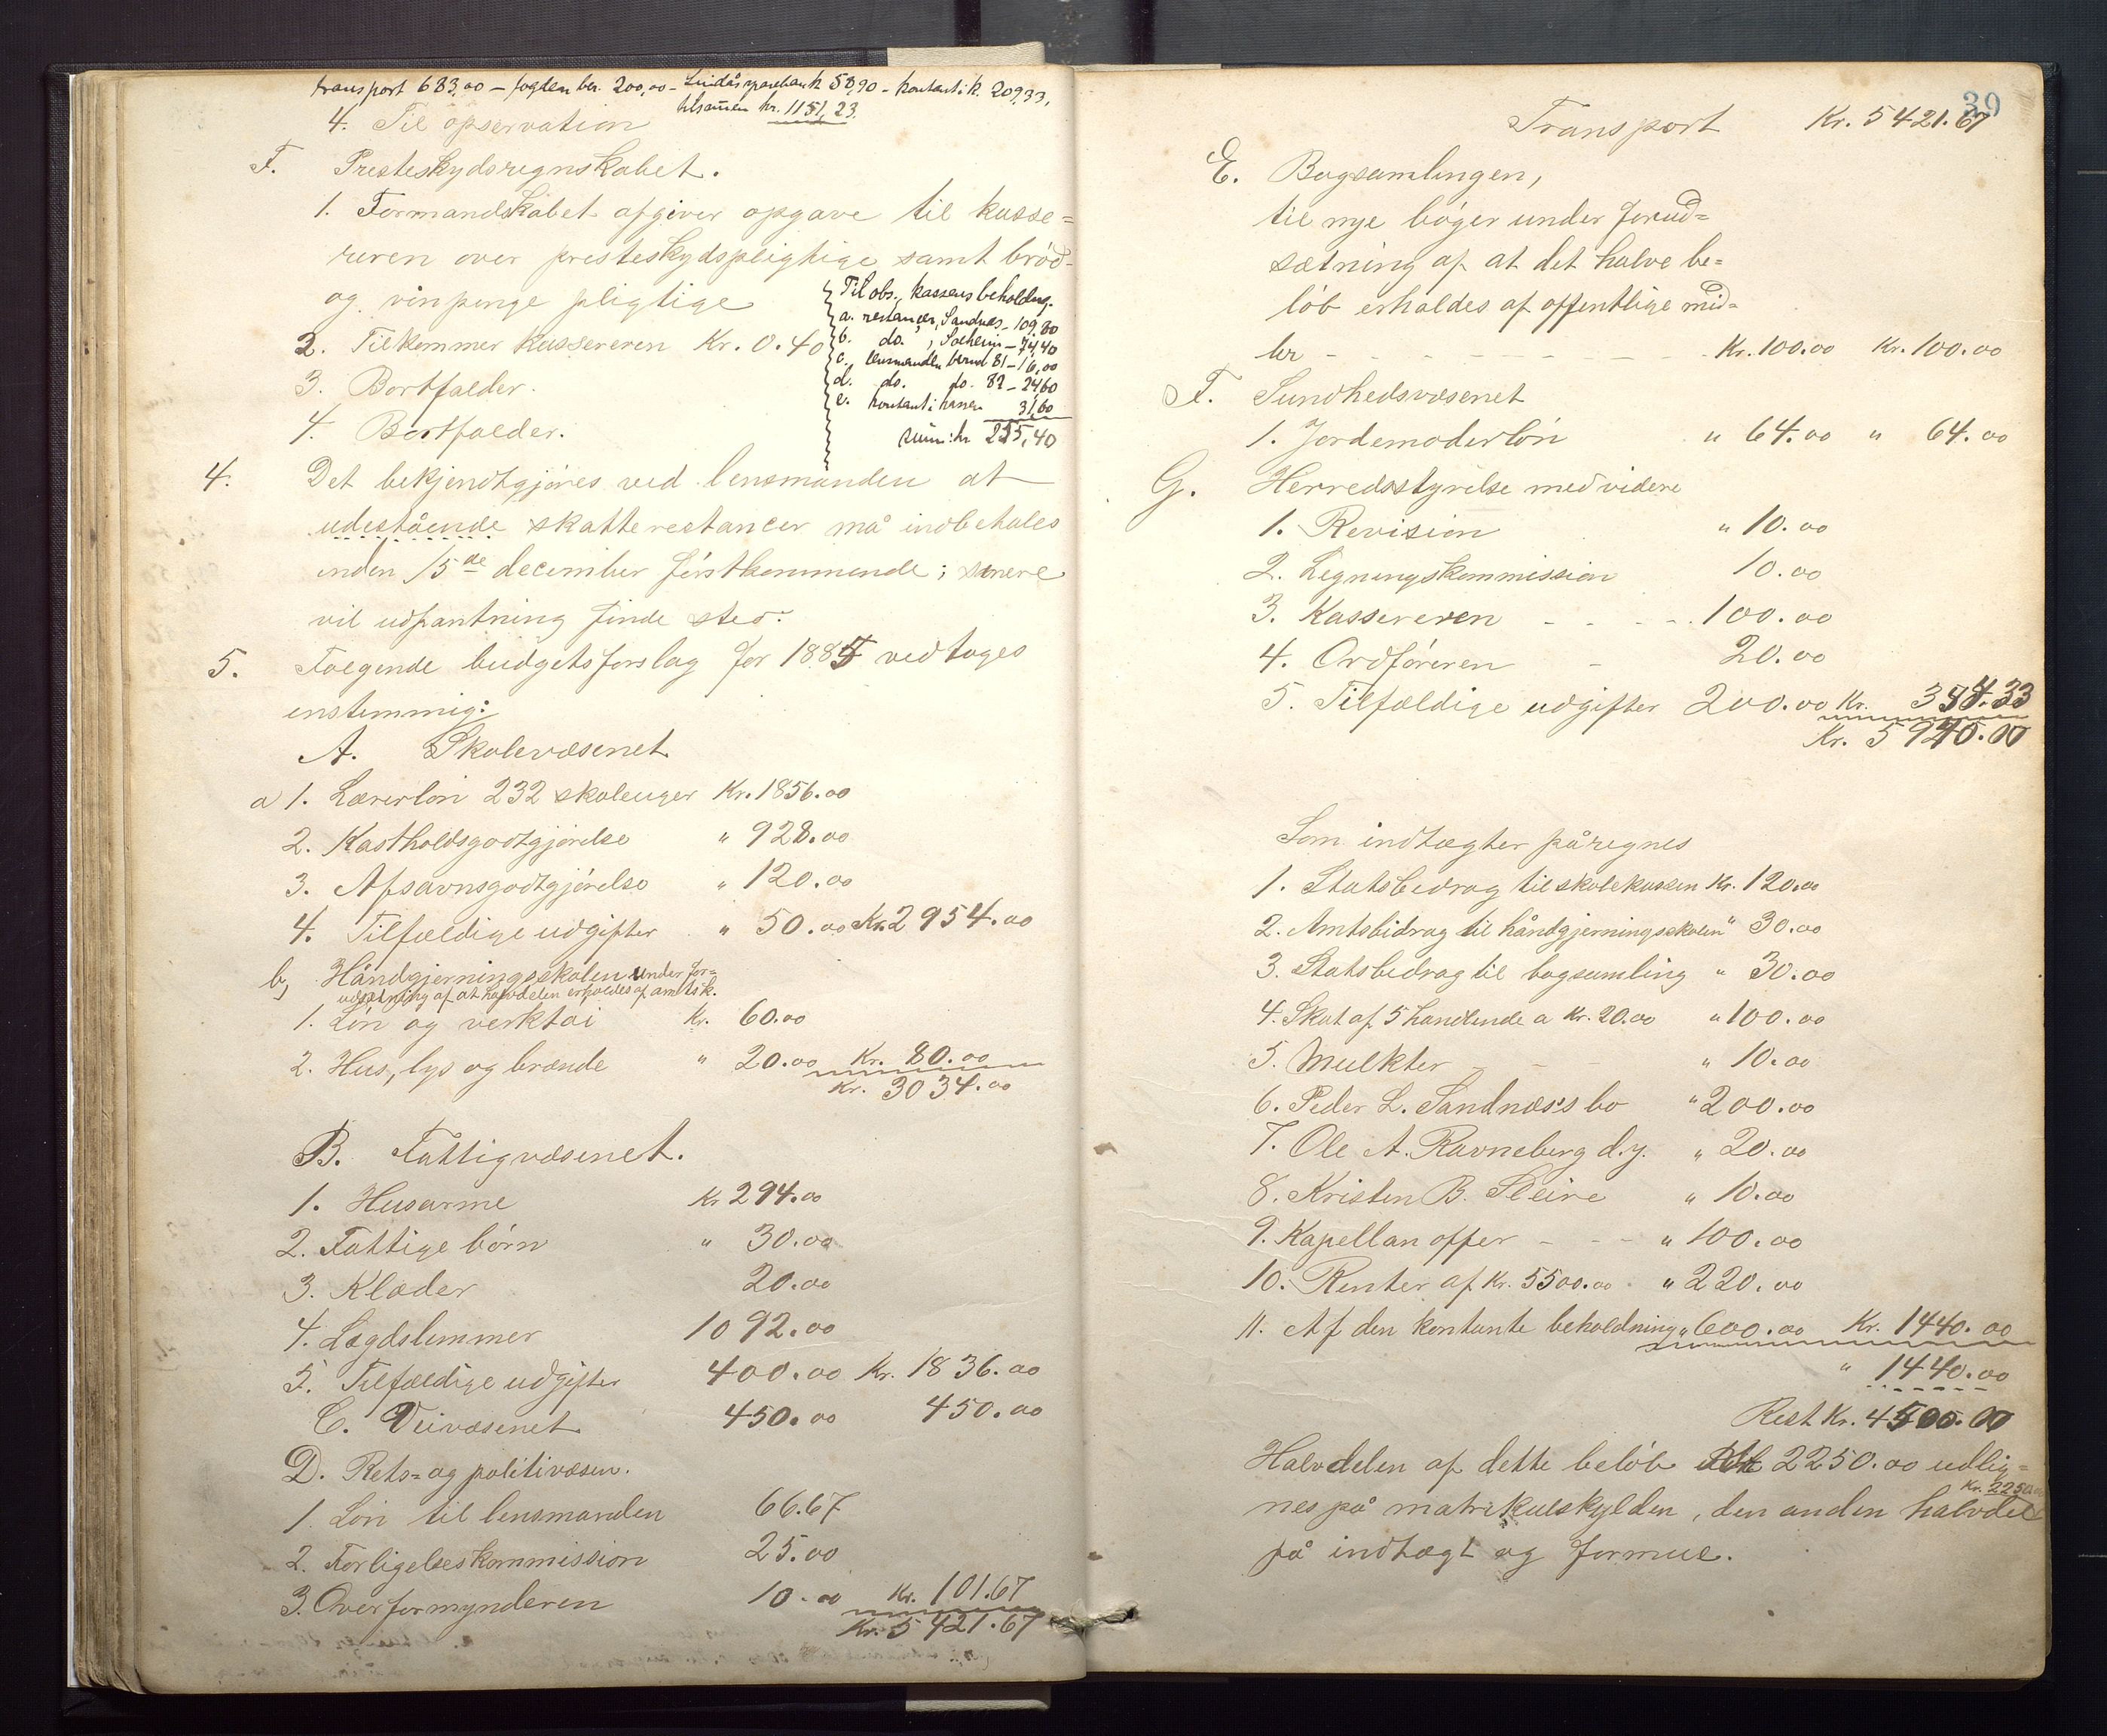 transport 683,00 – fogden ber. 200,00 – Lindås sparebank 58,90 – kontant i k. 209,33,
tilsamen kr. 1151,23.
4. Til opservation
F. Presteskydsregnskabet.
1. Formandskabet afgiver opgave til kasse=
reren over presteskydspligtige samt bröd-
og vinpenge pligtige
2. Tilkommer kassereren Kr. 0.40
3. Bortfalder.
4. Bortfalder.
Til obs. kassens beholdng.
a. restancer, Sandnes – 109,80
b. do. , Solheim – 74,40
c. lensmanden 81 – 16,00
d. do. do. 82 – 24,60
e. kontant i kassen 31,60
sum: kr 255,40
4. Det bekjendtgjöres ved lensmanden at
udestående skatterestancer må indbetales
inden 15de december förstkommende; senere
vil udpantning finde sted.
5. Fölgende budgetsforslag for 1885 vedtoges
enstemmig:
A. Skolevæsenet
a 1. Lærerlön 232 skoleuger Kr. 1856.00
2. Kostholdsgodtgjörelse " 928.00
3. Afsavnsgodtgjörelse " 120.00
4. Tilfældige udgifter " 50.00 Kr. 2954.00
b, Håndgjerningsskolen under for=
udsætning af at halvdelen erholdes af amtsk.
1. Lön og verktöi Kr. 60.00
2. Hus, lys og brænde " 20.00 Kr. 80.00
Kr. 3034.00
B. Fattigvæsenet.
1. Husarme Kr 294.00
2. Fattige börn " 30.00
3. Klæder 20.00
4. Lægdslemmer 1092.00
5. Tilfældige udgifter 400.00 Kr. 1836.00
C. Veivæsenet 450.00 450.00
D. Rets= og politivæsen.
1. Lön til lensmanden 66.67
2. Forligelseskommission 25.00
3. Overformynderen 10.00 Kr. 101.67
Kr. 5421.67
39
Transport Kr. 5421.67
E. Bogsamlingen,
til nye böger under forud=
sætning af at det halve be=
löb erholdes af offentlige mid=
ler – – – – – – – Kr. 100.00 Kr. 100.00
F. Sundhedsvæsenet
1. Jordemoderlön " 64.00 " 64.00
G. Herredsstyrelse med videre
1. Revision " 10.00
2. Ligningskommission 10.00
3. Kassereren – – – – 100.00
4. Ordföreren – 20.00
5. Tilfældige udgifter 200.00 Kr. 354.33
Kr. 5940.00
Som indtægter påregnes
1. Statsbidrag til skolekassen Kr. 120.00
2. Amtsbidrag til håndgjerningsskolen " 30.00
3. Statsbidrag til bogsamling " 30.00
4. Skat af 5 handlende a Kr. 20.00 " 100.00
5. Mulkter – – " 10.00
6. Peder L. Sandnæs's bo " 200.00
7. Ole A. Ravneberg d.y. " 20.00
8. Kristen B. Sleire " 10.00
9. Kapellanoffer – – – " 100.00
10. Renter af Kr. 5500.00 " 220.00
11. Af den kontante beholdning " 600.00 Kr. 1440.00
" 1440.00
Rest Kr. 4500.00
Halvdelen af dette belöb 2250.00 udlig=
nes på matrikulskylden, den anden halvdel Kr. 2250.00
på indtægt og formue.